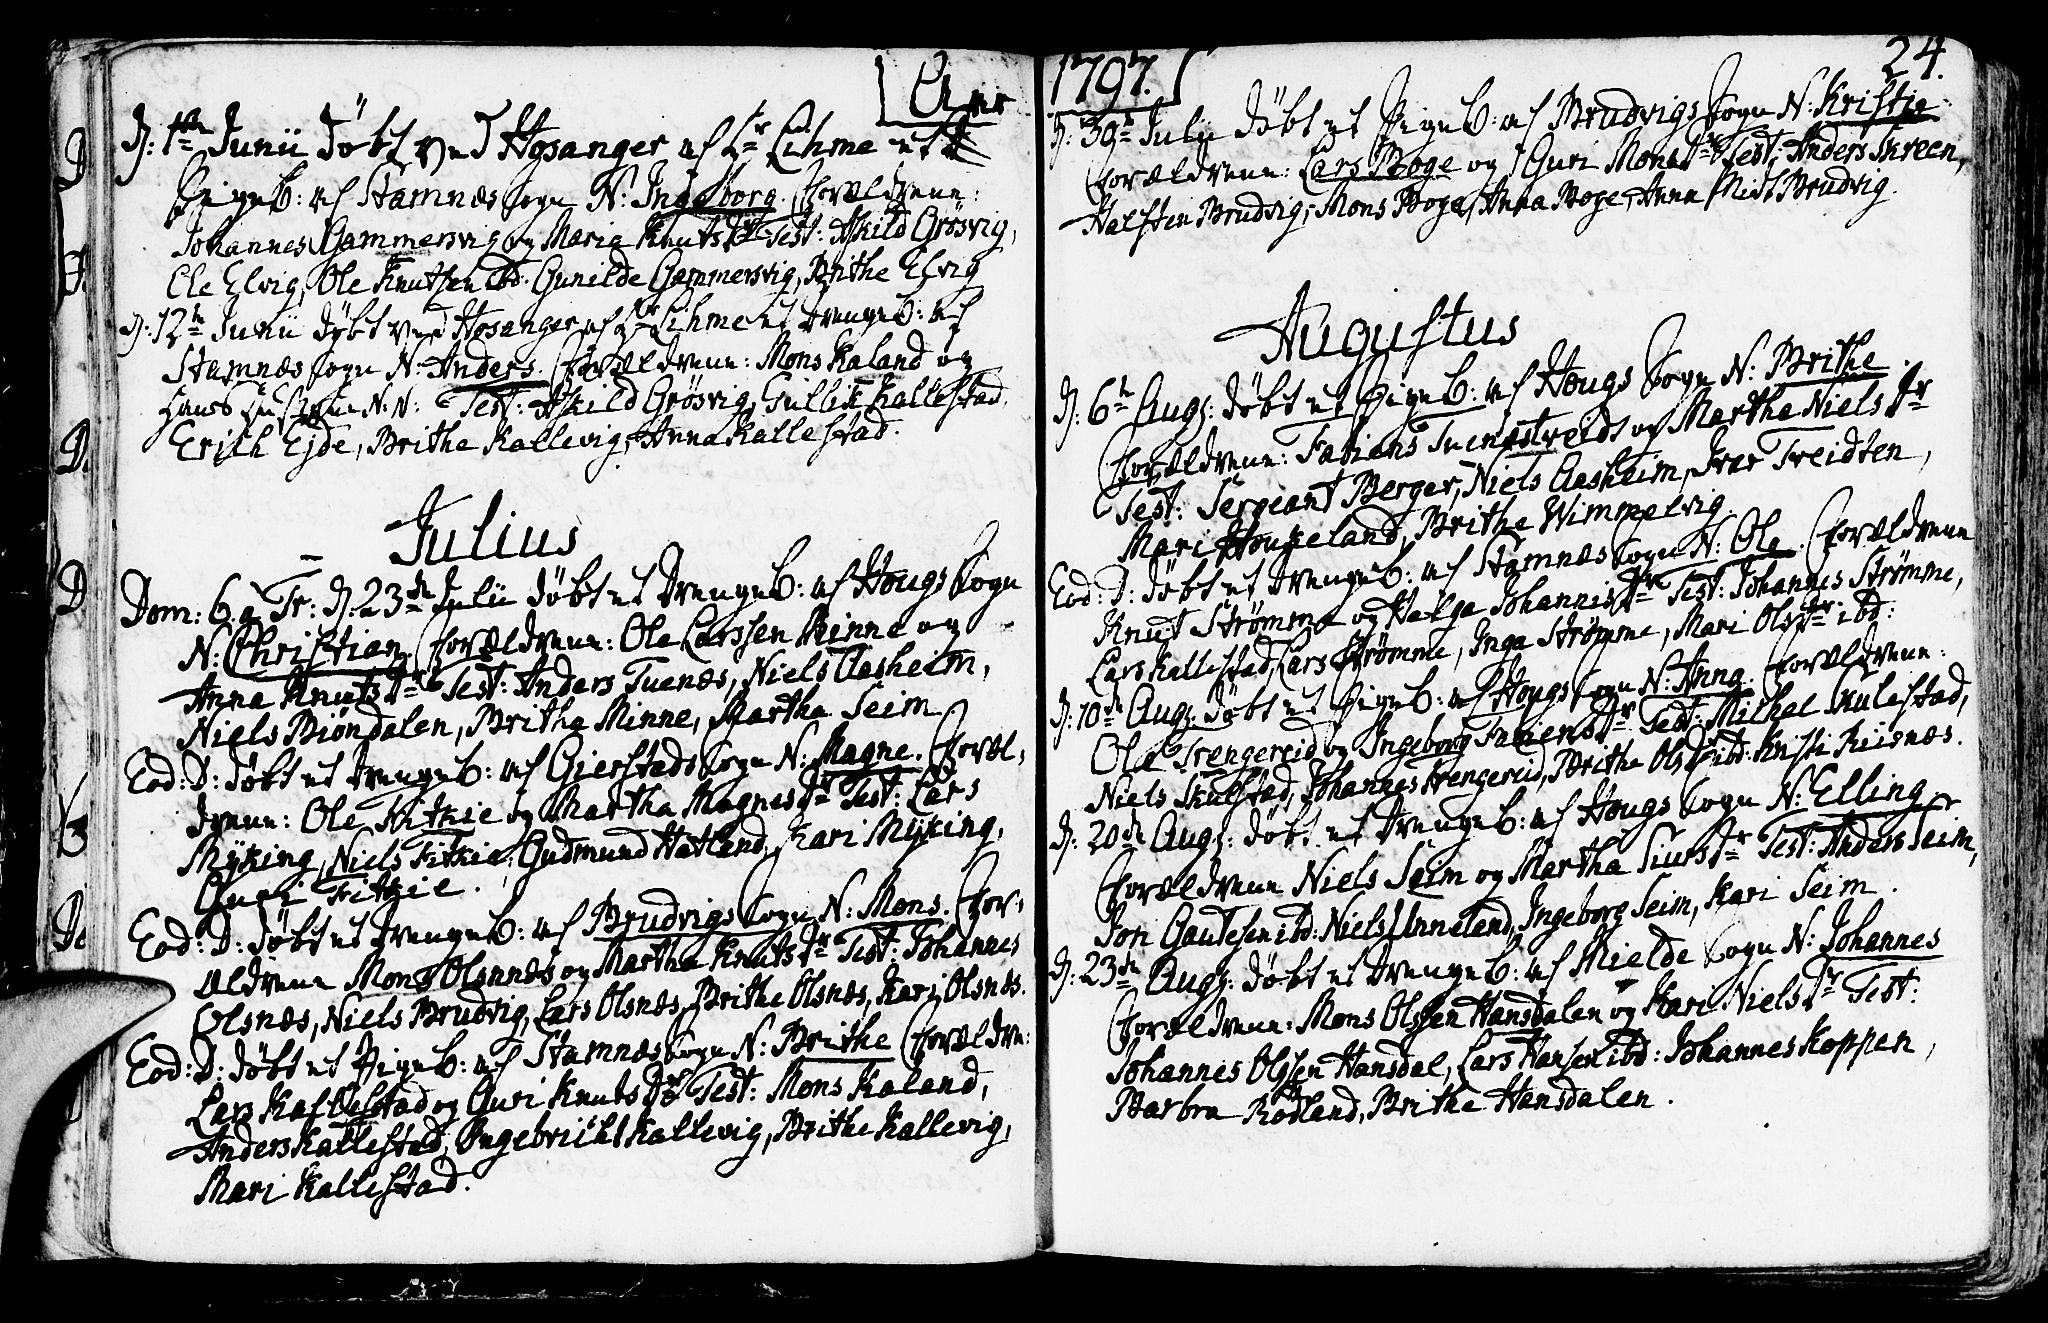 Anno
D: 1te Junii døbt ved Hosanger af Hr Lihme et
Pigeb: af Stamnæs Sogn N: Ingeborg. Forældrene:
Johannes Gammersvig og Maria Knuts Dr Test: Askild Grøsvig,
Ole Elvig, Ole Knutsen ibd: Gunilde Gammersvig, Brithe Elvig
D: 12te Junii døbt ved Hosanger af Hr Lihme et Drengeb: af
Stamnæs Sogn N: Anders. Forældrene: Mons Kaland og
Hans Hustrue N: N: Test: Askild Grøsvig, Gullik Kallestad,
Erich Ejde, Brithe Kallevig, Anna Kallestad.
Julius
Dom: 6. a Tr: D: 23de Julii døbt et Drengeb: af Hougs Sogn
N: Christian. Forældrene: Ole Larssen Minne og
Anna Knuts Dr Test: Anders Tuenæs, Niels Aasheim,
Niels Biøndalen, Britha Minne, Martha Seim
Eod: D: døbt et Drengeb: af Gierstads Sogn N: Magne. Foræl-
drene: Ole Fitkie og Martha Magnes Dr Test: Lars
Mÿking, Niels Fitkie, Gudmund Hatland, Kari Mÿking,
Guri Fitkie.
Eod: D: døbt et Drengeb: af Brudvigs Sogn N: Mons. For-
ældrene Mons Olsnæs og Martha Knuts Dr Test: Johannes
Olsnæs, Niels Brudvig, Lars Olsnæs, Brithe Olsnæs, Kari Olsnæs.
Eod: D: døbt et Pigeb: af Stamnæs Sogn N: Brithe Forældre:
Lars Kallestad og Guri Knuts Dr Test: Mons Kaland,
Anders Kallestad, Ingebricht Kallevig, Brithe Kallevig,
Mari Kallestad.
1797.
24.
D: 30te Julii døbt et Pigeb: af Brudvigs Sogn N: Kristie
Forældrene: Lars Boge og Guri Mons Dr Test: Anders Skreen,
Halstein Brudvig, Mons Boge, Anna Boge, Anna Midt Brudvig.
Augustus
D: 6te Aug: døbt et Pigeb: af Hougs Sogn N: Brithe.
Forældrene: Fabians Tuenæstreids og Martha Niels Dr
Test: Sergeant Berger, Niels Aasheim, Ivar Treidsen,
Mari Houkeland, Brithe Wimmelvig.
Eod: D: døbt et Drengeb: af Stamnæs Sogn N: Ole. Forældrene
Knut Strømme og Helga Johannis Dr Test: Johannes Strømme,
Lars Kallestad, Lars Strømme, Inga Strømme, Mari Ols Dr ibd:
D: 10de Aug: døbt et Pigeb: af Hougs Sogn N: Anna. Forældrene:
Ole Trengereid og Ingeborg Fabiens Dr Test: Mikkel Skulestad,
Niels Skulstad, Johannes Trengereid, Brithe Ols Dr ibd: Kristi Reisnæs.
D: 20de Aug: døbt et Drengeb: af Hougs Sogn N: Elling
Forældrene Niels Seim og Martha Siurs Dr Test: Anders Seim,
Jon Gautesen ibd: Niels Unneland, Ingeborg Seim, Kari Seim.
D: 23de Aug: døbt et Drengeb: af Mielde Sogn N: Johannes
Forældrene: Mons Olssen Hansdalen og Kari Niels Dr Test:
Johannes Olssen Hansdal, Lars Hansen ibd: Johannes Koppen,
Barbra Rødland, Brithe Hansdalen.